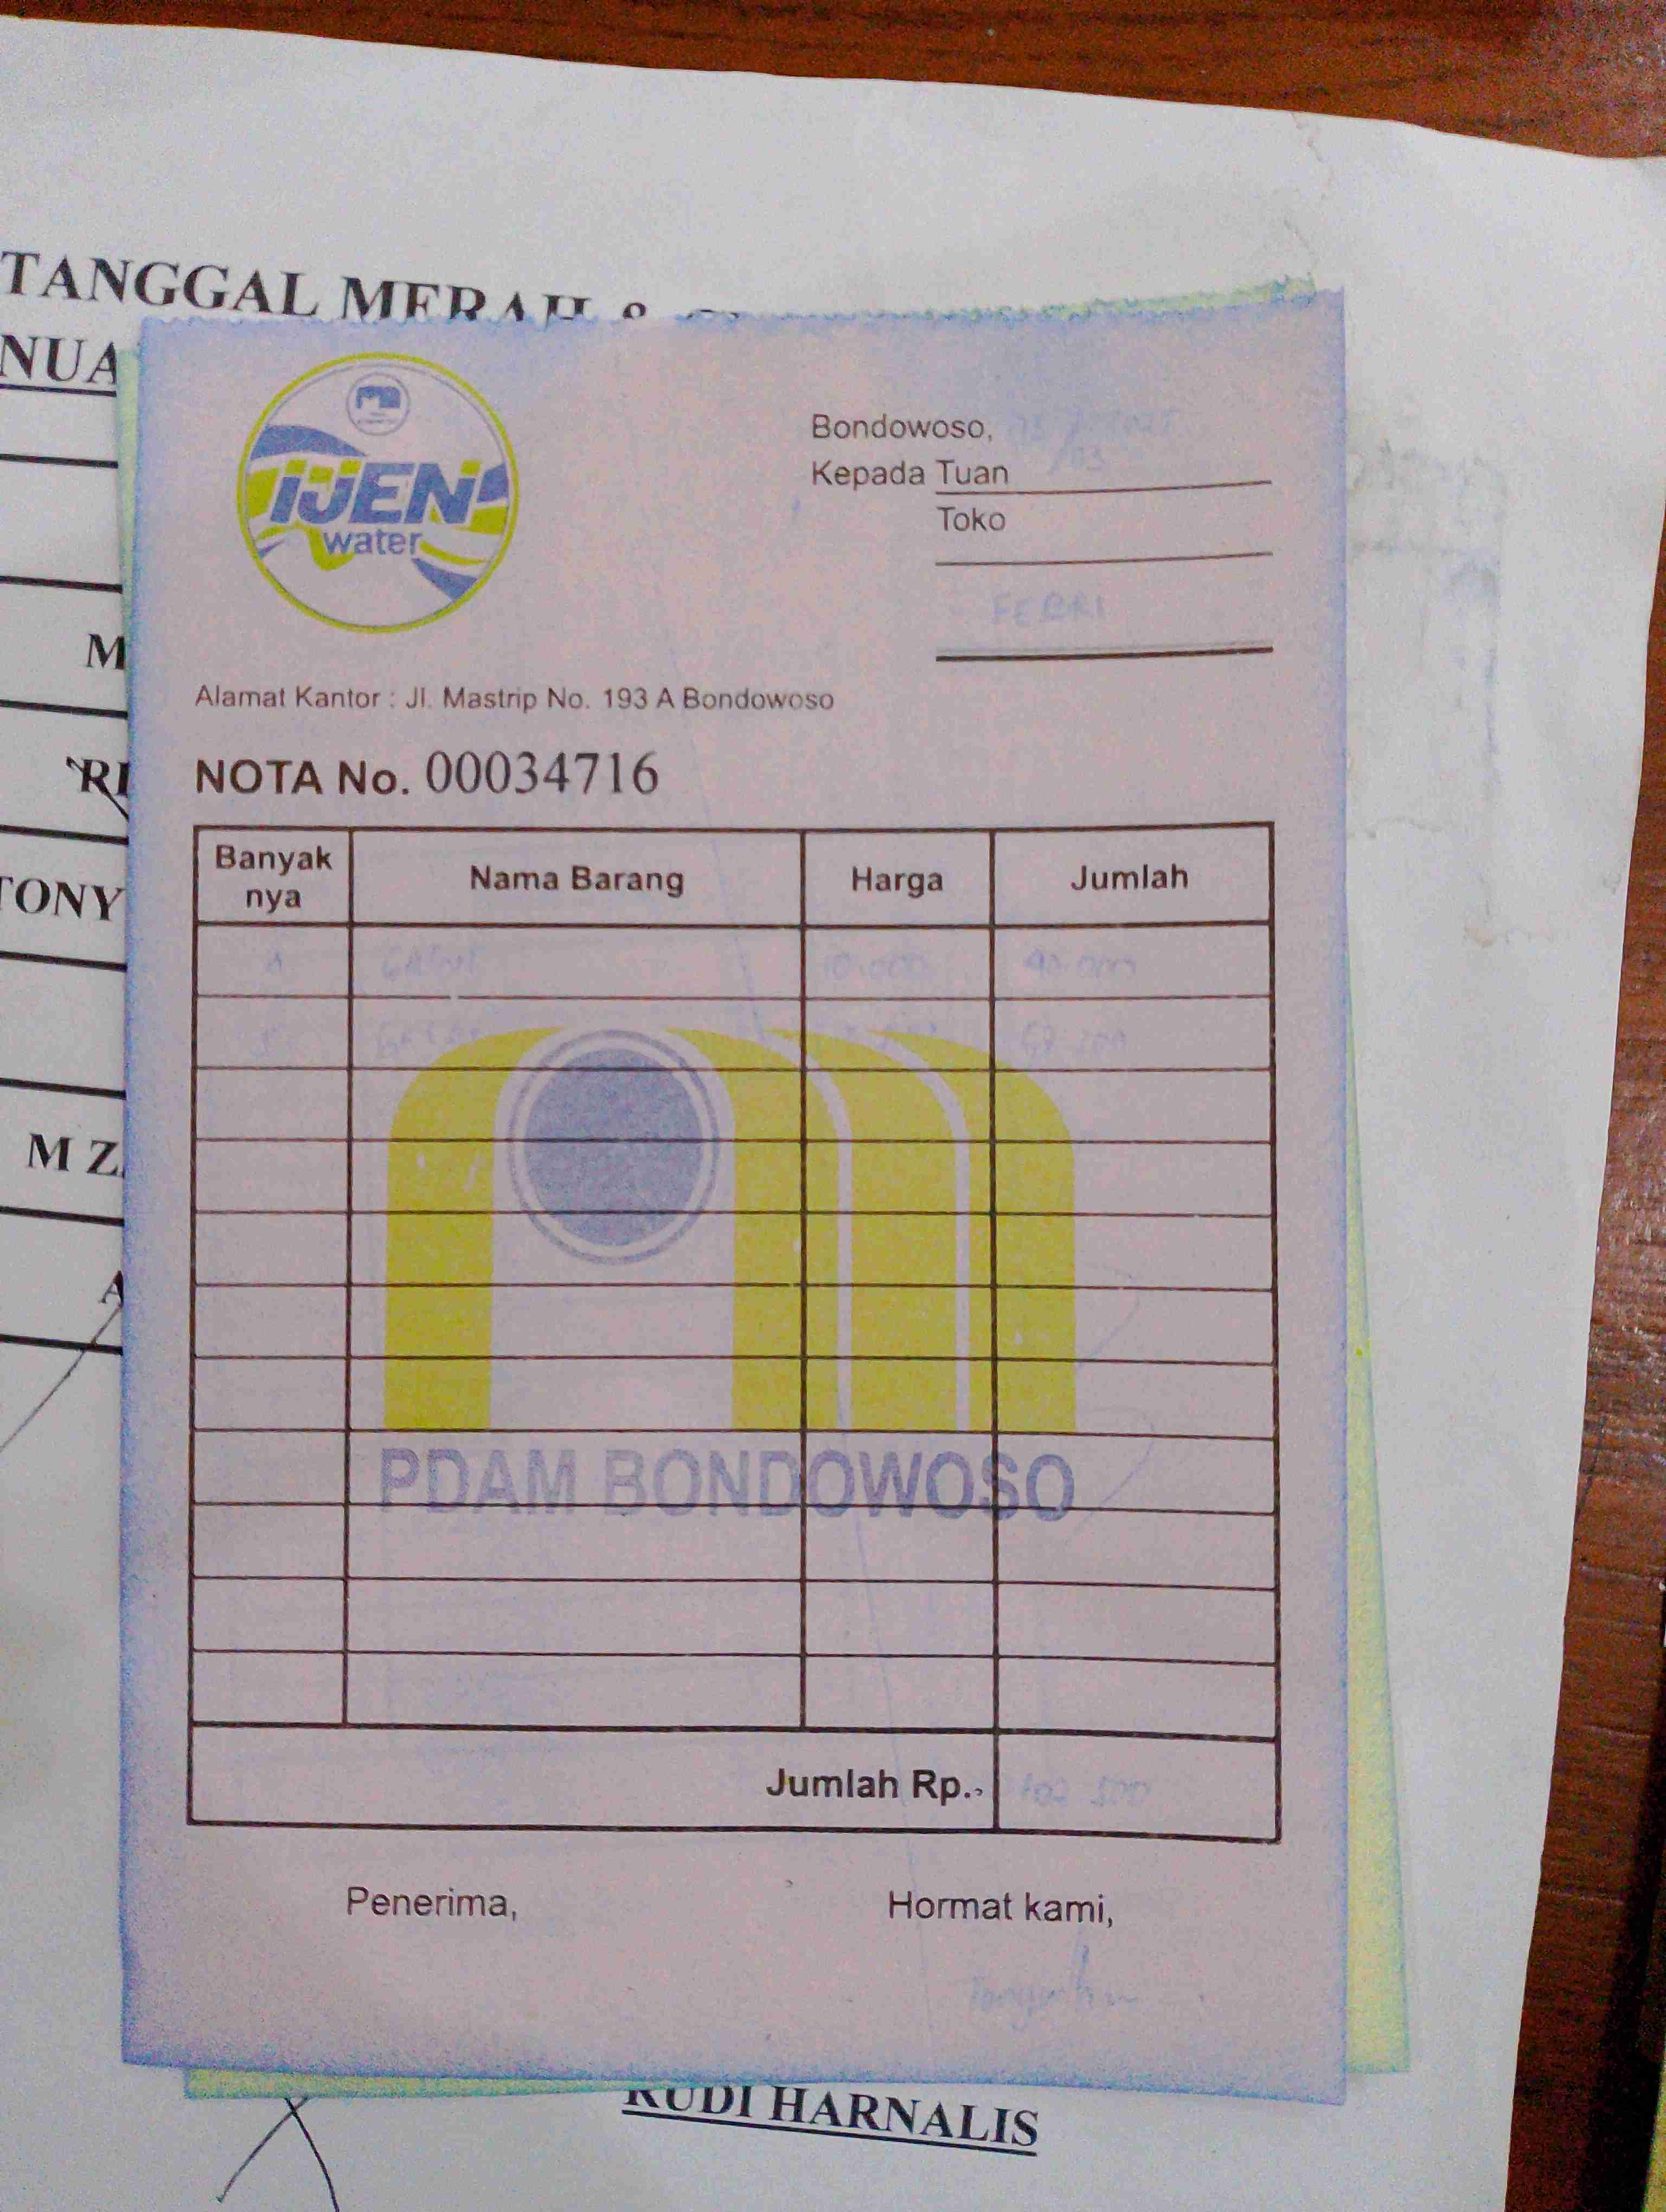 TANGGAL MERAH &
NUA
IJEN
water
Bondowoso,
Kepada Tuan
Toko
FEBRI
Alamat Kantor : Jl. Mastrip No. 193 A Bondowoso
NOTA No. 00034716
M
RI
TONY
M Z
A
Banyak nya Nama Barang Harga Jumlah
10.000
PDAM BONDOWOSO
Jumlah Rp.
Penerima, Hormat kami,
RUDI HARNALIS